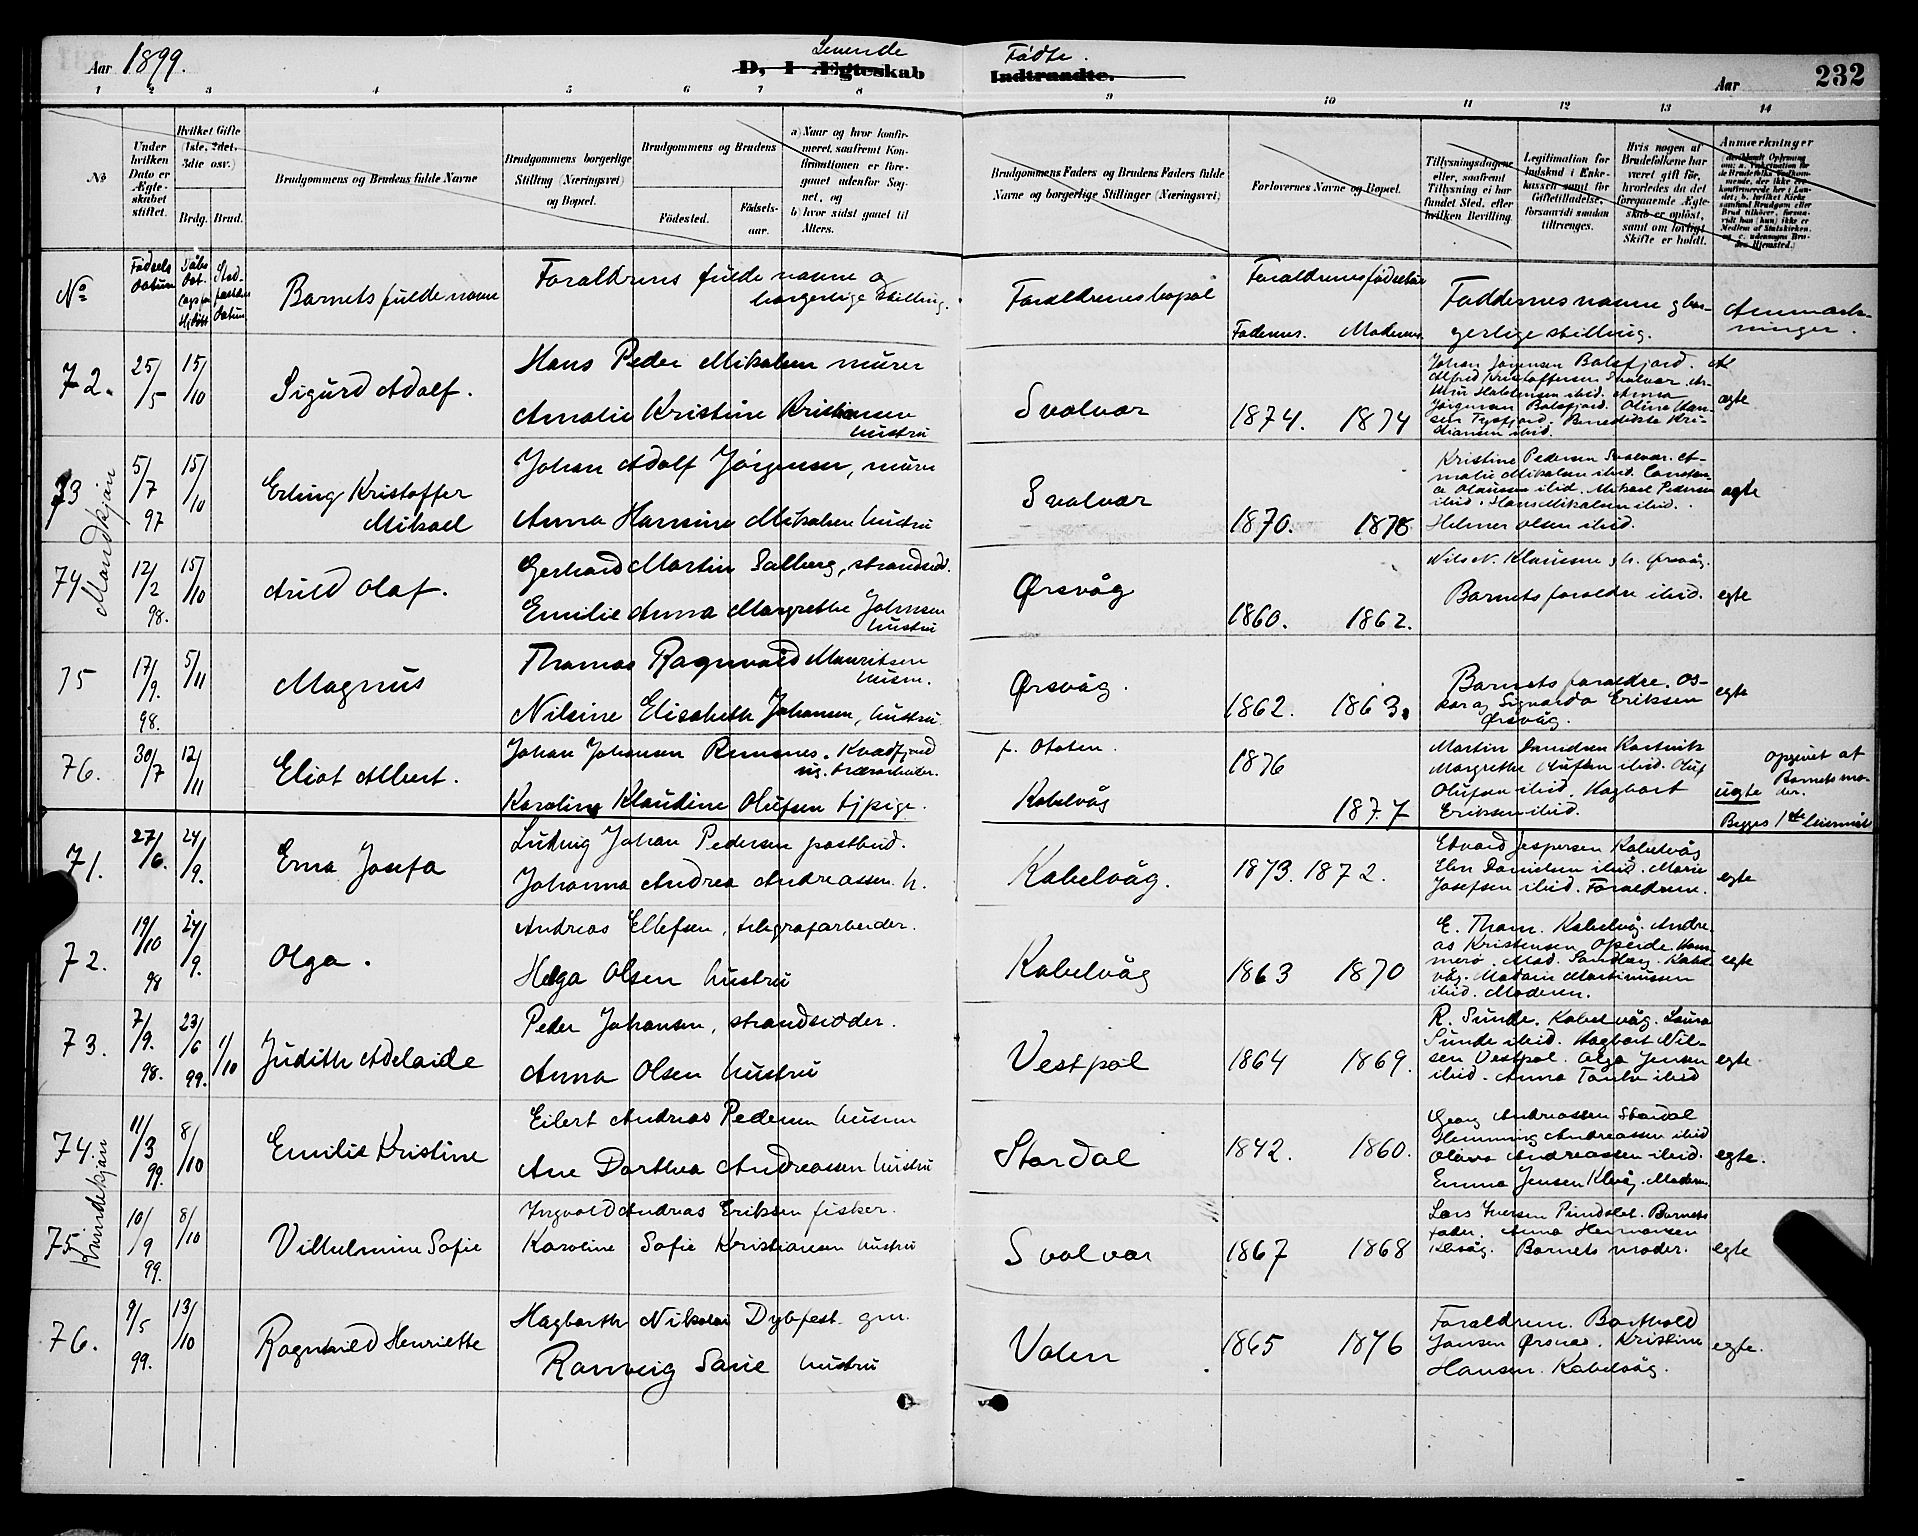 Aar 1899.
Levende Fødte.
D, I Ægteskab Indtraadte.
Aar
232
1 2 3 4 5 6 7 8 9 10 11 12 13 14
№
Under hvilken Dato er Ægteskabet stiftet.
Hvilket Gifte (1ste, 2det, 3die osv.)
Brdg. Brud.
Brudgommens og Brudens fulde Navne
Brudgommens borgerlige Stilling (Næringsvei) og Bopæl.
Brudgommens og Brudens
Fødested.
Fødselsaar.
a) Naar og hvor konfirmeret, saafremt Konfirmationen er foregaaet udenfor Sognet, og
b) hvor sidst gaaet til Alters.
Brudgommens Faders og Brudens Faders fulde Navne og borgerlige Stillinger (Næringsvei)
Forlovernes Navne og Bopæl.
Tillysningsdagene eller, saafremt Tillysning ei har fundet Sted, efter hvilken Bevilling.
Legitimation for Indskud i Enkekassen samt for Giftetilladelse, forsaavidt saadan tiltrænges.
Hvis nogen af Brudefolkene har været gift før, hvorledes da det foregaaende Ægteskab er opløst, samt om lovligt Skifte er holdt.
Anmerkninger
№
Fødsels Datum
Barnets fulde navn
Forældrens fulde navne og
borgerlige stilling.
Forældrenes bopæl
Forældrenes fødselsaar
Faderens. Moderens.
Faddernes navne og bor-
gerlige stilling.
Anmærk-
ninger.
Mandkjøn
72. 25/5 15/10 Sigurd Adolf.
Hans Peder Mikalsen murer
Amalie Kristine Kristiansen
hustru
Svolvær 1874. 1874
Johan Jørgensen Balsfjord.
Alfred Kristoffersen Svolvær
Jørgensen Balsfjord. Olina Han-
sen Tysfjord. Benedikte Kri-
stiansen ibid.
ægte
73 5/7 97 15/10 Erling Kristoffer
Mikael
Johan Adolf Jørgensen, murer
Anna Hansine Mikalsen hustru
Svolvær 1870. 1878
Kristine Pedersen Svolvær. A-
malie Mikalsen ibid.
Olaussen ibid. Mikael Pedersen
ibid. Hans Mikalsen ibid.
Helmer Olsen ibid.
ægte
74 12/2 98. 15/10 Arild Olaf.
Gerhard Martin Salberg, strandsid.
Emilie Anna Margrethe Johnsen
hustru
Ørsvåg 1860. 1862.
Nils N. Klaussen g h. Ørsvåg.
Barnets foreldre ibid.
egte
75 17/9. 98. 5/11 Magnus
Thomas Ragnvald Mauritsen
husm.
Nilsine Elisabeth Johansen, hustru
Ørsvåg. 1862. 1863.
Barnets foreldre. Os-
kar og Sigvarda Eriksen
Ørsvåg.
egte
76. 30/7 12/11 Eliot Albert.
Johan Johansen Remmes. Kvæfjord
Karoline Klaudine Olufsen tjpige.
Kabelvåg 1876 1877
Margrethe Olufsen ibid. Oluf
Olufsen ibid. Hagbart
Eriksen ibid.
uægte
opgivet af
Barnets mo-
der.
Begges 1ste leiermål
Kvindekjøn
71. 27/6. 24/9. Erna Josefa
Ludvig Johan Pedersen postbud.
Johanna Andrea Andreassen h.
Kabelvåg. 1873. 1872.
Edvard Jespersen Kabelvåg
Elen Danielsen ibid. Marie
Josefsen ibid. Forældrene.
egte
72. 19/10 98 24/9. Olga.
Andreas Ellefsen, telegrafarbeider.
Helga Olsen hustru
Kabelvåg 1863 1870
E. Thom. Kabelvåg. Andre-
as Kristensen Opeide. Ham-
merø. Mad. Sandberg. Kabel-
våg. Madam Martinussen
ibid. Moderen.
egte
73. 7/9. 98. 23/6 99. 1/10 Judith Adelaide
Peder Johansen, strandsidder.
Anna Olsen hustru
Vestpol 1864 1869.
R. Sunde. Kabelvåg. Laura
Sunde ibid. Hagbart Nil-
sen Vestpol. Olga Jensen
ibid. Anna ibid
egte
74. 11/3 99. 8/10 Emilie Kristine
Eilert Andreas Pedersen husm
Ane Dorthea Andreassen hustru
Stordal 1842. 1860.
Georg Andreassen Stordal
Hemming Andreassen ibid
Olava Andreassen ibid.
Emma Jensen Klevåg. Moderen
egte.
75. 10/9 99. 8/10 Vilhelmine Sofie
Ingvold Andreas Eriksen fisker.
Karoline Sofie Kristiansen hustru
Svolvær 1867 1868
Lars Iversen Pundslet. Barnets
fader. Anna Hermansen
Barnets moder.
egte
76. 9/5 99. 13/10 Ragnhild Henriette
Hagbarth Nikolai Dybfest gm.
Ranveig Sarie hustru
Volen 1865 1876
Forældrene. Barthold
Jansen Ørsnes. Kristine
Hansen. Kabelvåg.
egte.